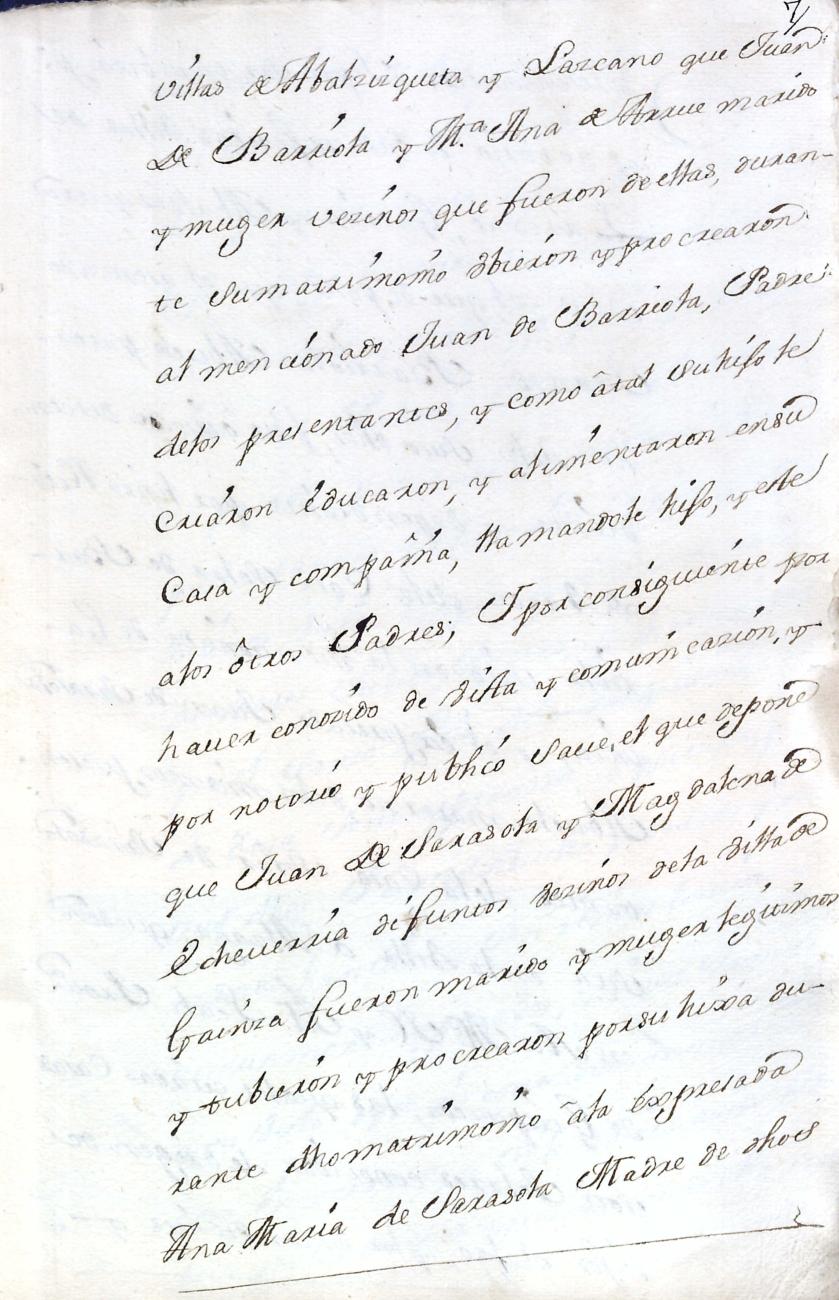 7
villas de Abalzizqueta y Lazcano que Juan
De Barriola y M.ª Ana de Arrue marido
y muger vezinos que fueron de ellas, duran-
te sumatrimonio obieron y procrearon
al mencionado Juan de Barriola, Padre
delos presentantes, y como âtal suhijo le
criaron éducaron, y alimentaron ensu
Casa y compañia, llamandole hijo, y este
alos ôtros Padres; Y por consiguiente por
haver conozido de vista y comunicazion, y
por notorio y publico save, el que depone
que Juan De Sarasola y Magdalena de
Echeverria difuntos vezinos dela villa de
Gainza fueron marido y muger legitimos
y tubieron y procrearon porsu hixa du-
rante dhomatrimonio âla éxpresada
Ana Maria de Sarasola Madre de dhos